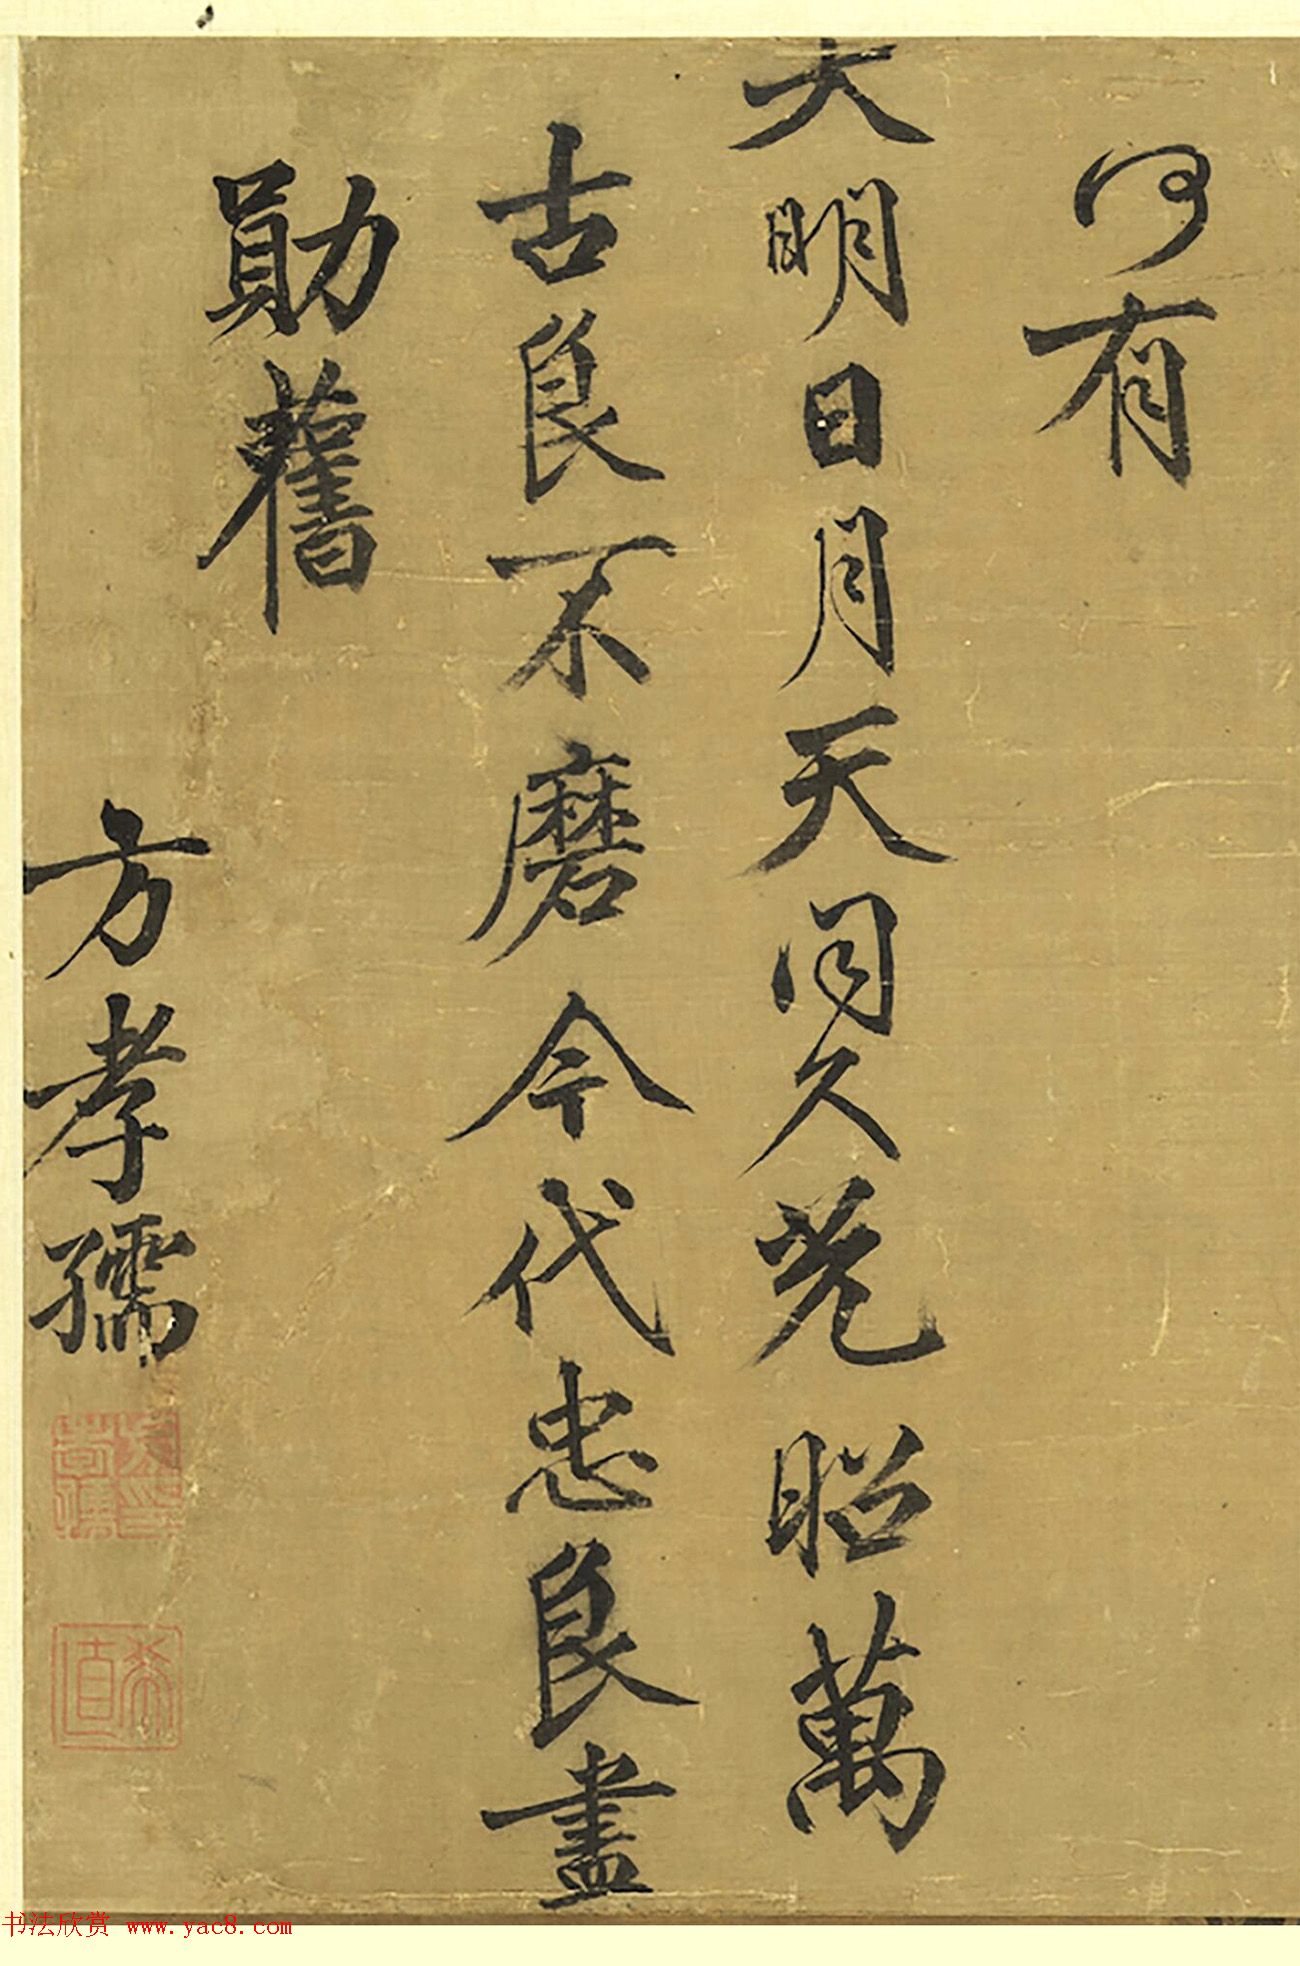 何有
大明日月天同久光昭萬
古良不磨今代忠良盡
勛舊
方孝孺
希直
书法欣赏 www.yac8.com